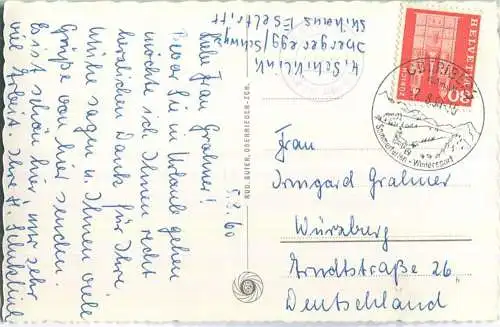 H. Schiklink
Iberger egg/Schwyz
Skihaus Eseltritt
5.8.60
Liebe Frau Gralmer!
Bevor Sie in Urlaub gehen
möchte ich Ihnen recht
herzlichen Dank für Ihre
Mühe sagen u. Ihnen viele
Grüße von hier senden.
Es ist schön hier nur sehr
viel Arbeit. Ihre H. Schiklink
RUD. SUTER, OBERRIEDEN-ZCH.
HELVETIA
ZÜRICH
30
Sommerferien - Wintersport
Frau
Irmgard Gralmer
Würzburg
Arndtstraße 26
Deutschland